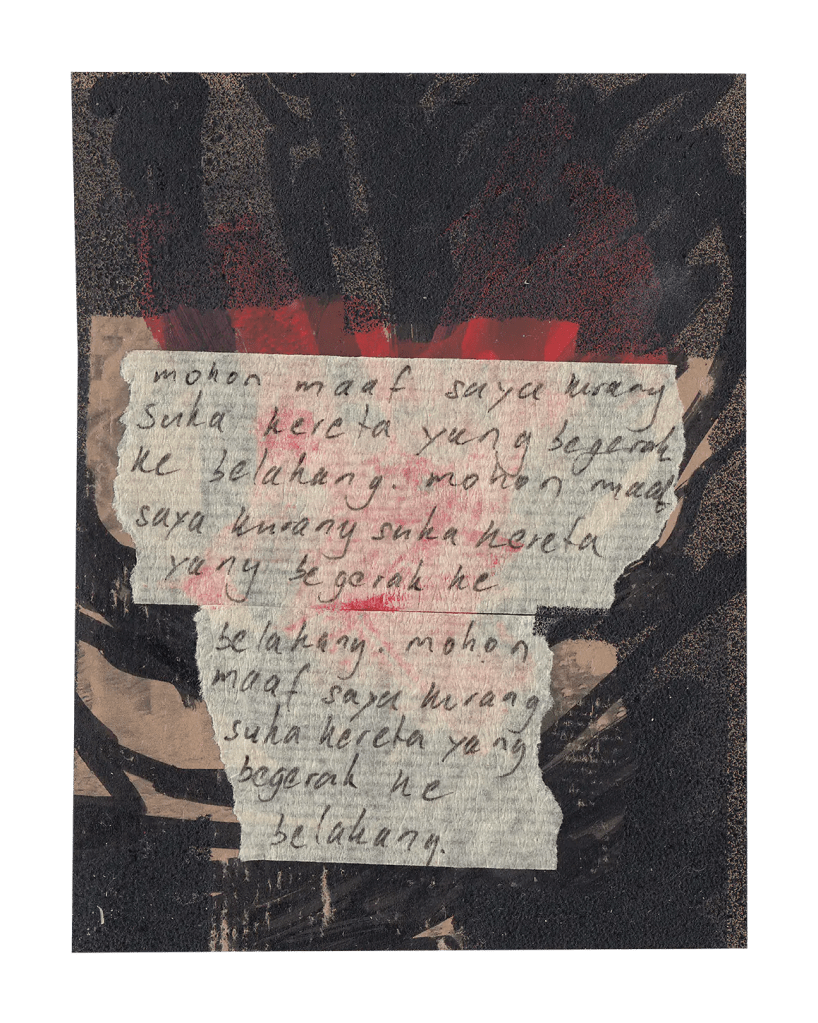 mohon maaf saya kurang
suka kereta yang begerak
ke belakang. mohon maaf
saya kurang suka kereta
yang begerak ke
belakang. mohon
maaf saya kurang
suka kereta yang
begerak ke
belakang.